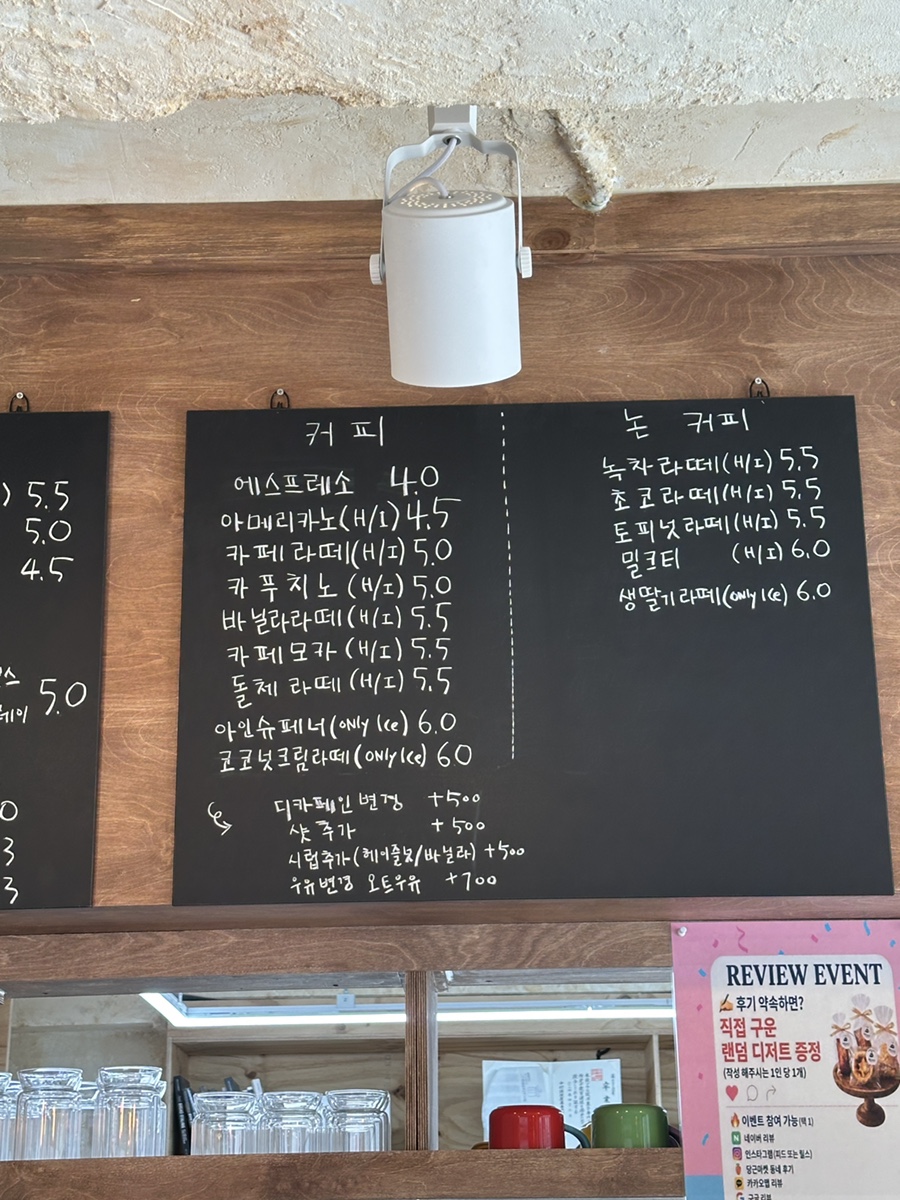 ) 5.5
5.0
4.5
5.0
레이
0
3
3
커피
에스프레소 4.0
아메리카노(H/I) 4.5
카페라떼(H/I) 5.0
카푸치노 (H/I) 5.0
바닐라라떼(H/I) 5.5
카페모카 (H/I) 5.5
돌체라떼 (H/I) 5.5
아인슈페너(only Ice) 6.0
코코넛크림라떼(only Ice) 60
디카페인 변경 +500
샷 추가 +500
시럽추가(헤이즐넛/바닐라) +500
우유변경 오트우유 +700
논 커피
녹차라떼(H/I) 5.5
초코라떼(H/I) 5.5
토피넛라떼(H/I) 5.5
밀크티 (H/I) 6.0
생딸기라떼(only Ice) 6.0
REVIEW EVENT
후기 약속하면?
직접 구운
랜덤 디저트 증정
(작성 해주시는 1인 당 1개)
이벤트 참여 가능(택1)
N 네이버 리뷰
인스타그램(피드 또는 릴스)
당근마켓 동네 후기
카카오맵 리뷰
구글 리뷰